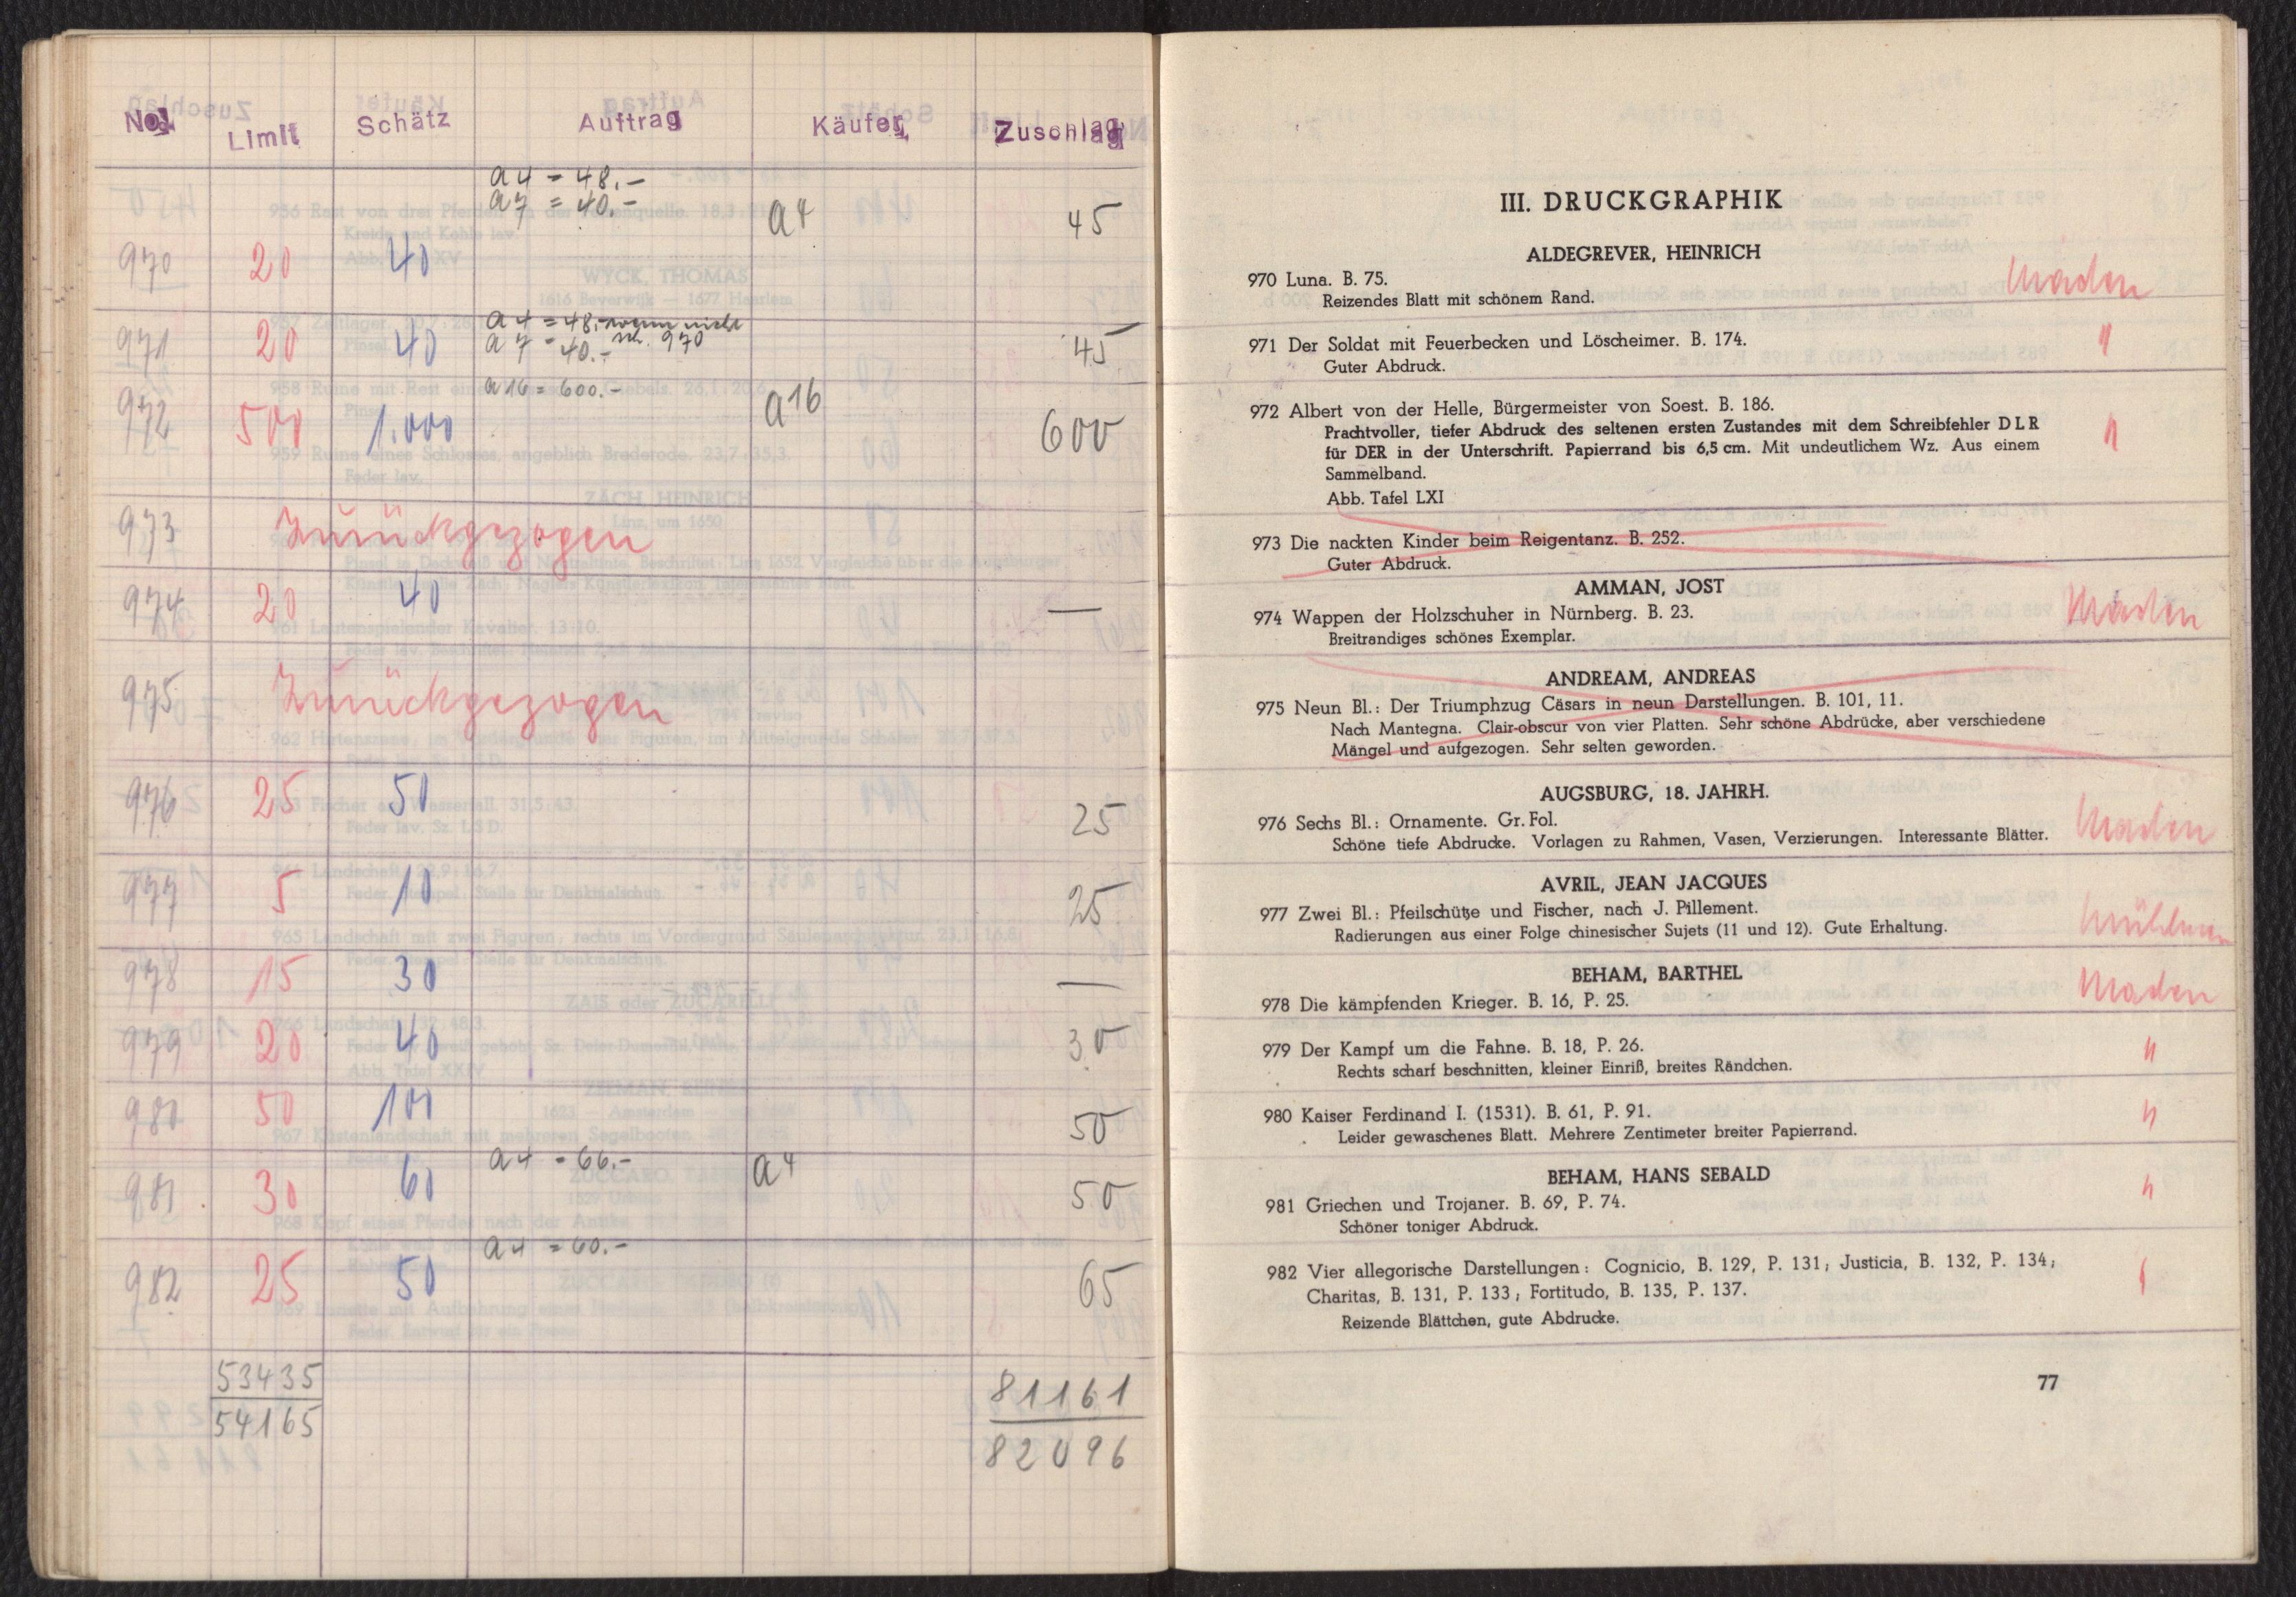 No. Limit Schätz Auftrag Käufer Zuschlag
a4 = 48.–
a7 = 40.–
970 20 40 a4 45
a4 = 48.– wenn nicht
a7 = 40.– 970
971 20 40 45
a16 = 600.–
972 500 1.000 a16 600
973 Zurückgezogen
974 20 40 —
975 Zurückgezogen
976 25 50 25
977 5 10 25
978 15 30 —
979 20 40 30
980 50 100 50
a4 = 66.–
981 30 60 a4 50
a4 = 60.–
982 25 50 65
53435 81161
54165 82096
III. DRUCKGRAPHIK
ALDEGREVER, HEINRICH
970 Luna. B. 75.
Reizendes Blatt mit schönem Rand.
971 Der Soldat mit Feuerbecken und Löscheimer. B. 174.
Guter Abdruck.
972 Albert von der Helle, Bürgermeister von Soest. B. 186.
Prachtvoller, tiefer Abdruck des seltenen ersten Zustandes mit dem Schreibfehler DLR
für DER in der Unterschrift. Papierrand bis 6,5 cm. Mit undeutlichem Wz. Aus einem
Sammelband.
Abb. Tafel LXI
973 Die nackten Kinder beim Reigentanz. B. 252.
Guter Abdruck.
AMMAN, JOST
974 Wappen der Holzschuher in Nürnberg. B. 23.
Breitrandiges schönes Exemplar.
ANDREAM, ANDREAS
975 Neun Bl.: Der Triumphzug Cäsars in neun Darstellungen. B. 101, 11.
Nach Mantegna. Clair-obscur von vier Platten. Sehr schöne Abdrücke, aber verschiedene
Mängel und aufgezogen. Sehr selten geworden.
AUGSBURG, 18. JAHRH.
976 Sechs Bl.: Ornamente. Gr. Fol.
Schöne tiefe Abdrucke. Vorlagen zu Rahmen, Vasen, Verzierungen. Interessante Blätter.
AVRIL, JEAN JACQUES
977 Zwei Bl.: Pfeilschütze und Fischer, nach J. Pillement.
Radierungen aus einer Folge chinesischer Sujets (11 und 12). Gute Erhaltung.
BEHAM, BARTHEL
978 Die kämpfenden Krieger. B. 16, P. 25.
979 Der Kampf um die Fahne. B. 18, P. 26.
Rechts scharf beschnitten, kleiner Einriß, breites Rändchen.
980 Kaiser Ferdinand I. (1531). B. 61, P. 91.
Leider gewaschenes Blatt. Mehrere Zentimeter breiter Papierrand.
BEHAM, HANS SEBALD
981 Griechen und Trojaner. B. 69, P. 74.
Schöner toniger Abdruck.
982 Vier allegorische Darstellungen: Cognicio, B. 129, P. 131; Justicia, B. 132, P. 134;
Charitas, B. 131, P. 133; Fortitudo, B. 135, P. 137.
Reizende Blättchen, gute Abdrucke.
77